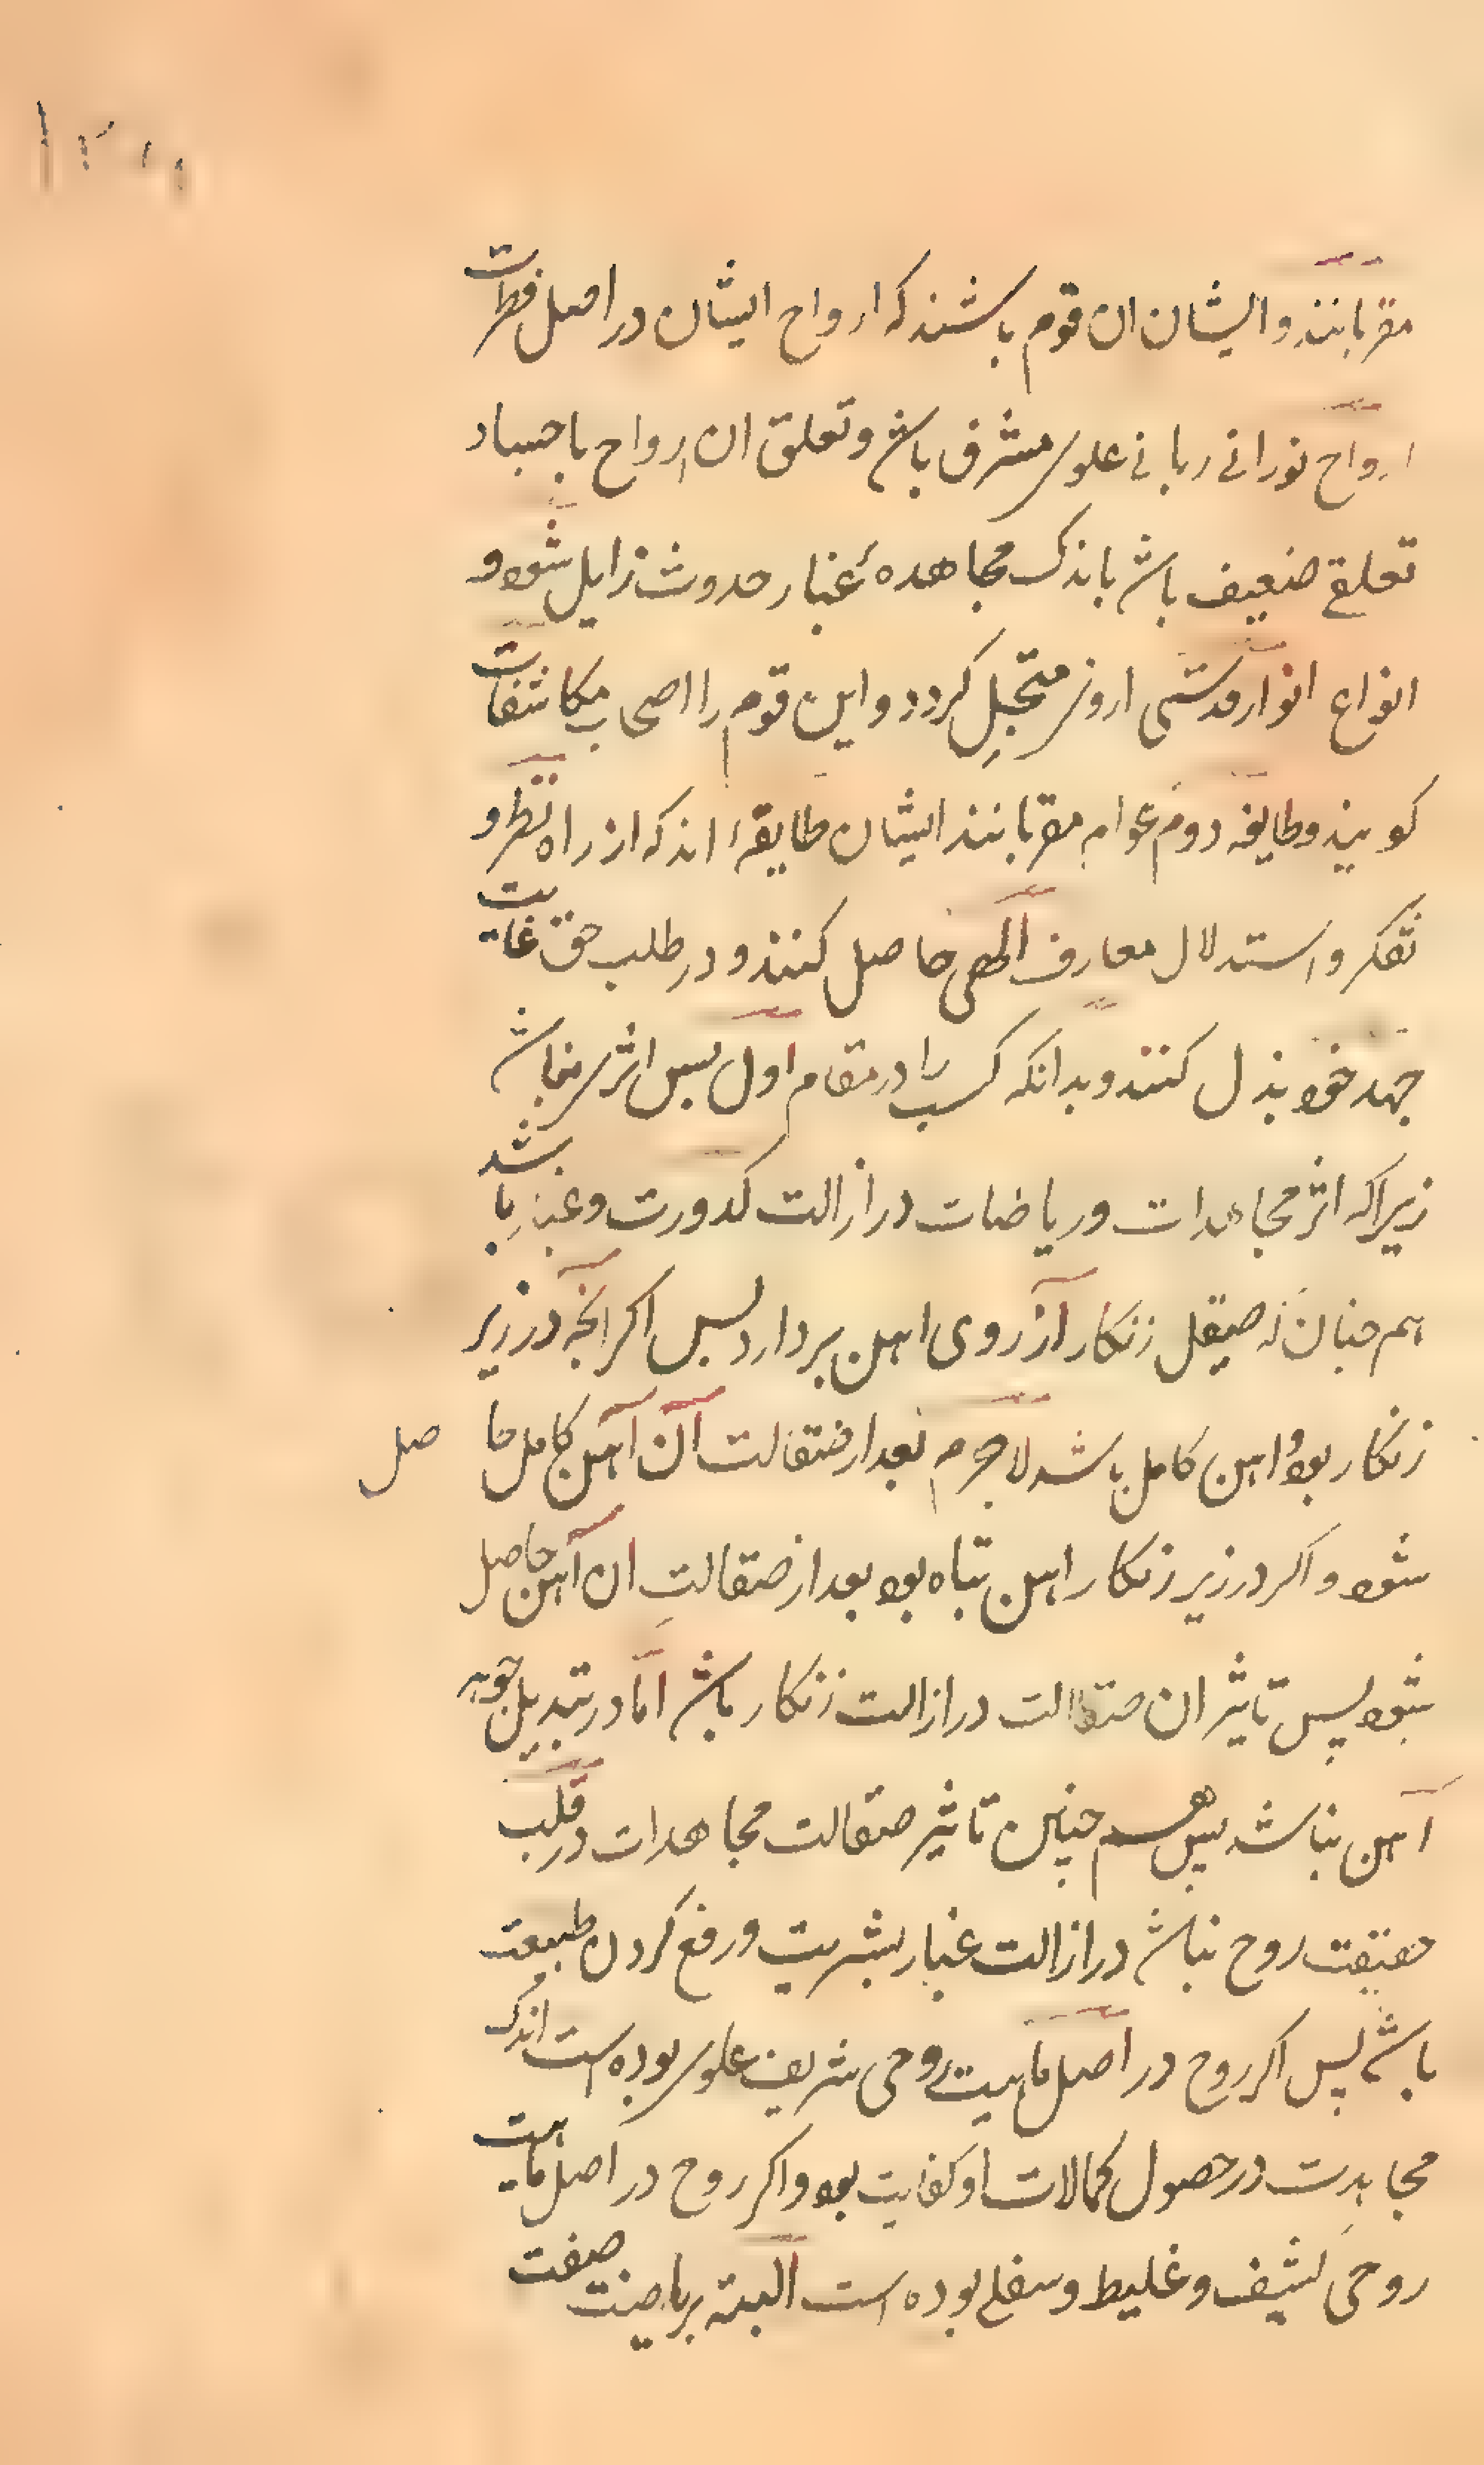 مقربانند و ایشان ان قوم باشند که ارواح ایشان در اصل فطرت
ارواح نورانی ربانی علوی مشرف باشد و تعلق ان ارواح باجساد
تعلقے ضعیف باشد باندک مجاهدهٔ غبار حدوث زایل شود و
انواع انوار قدسی از وی متجلی کردد و این قوم را اصحاب مکاشفات
کویند و طایفه دوم عوام مقربانند ایشان طایفهٔ اند که از راه نظر و
تفکر و استدلال معارف الهی حاصل کنند و در طلب حق غایت
جهد خود بذل کنند و بدانکه کسب را در مقام اول بس اثری نباشد
زیراکه اثر مجاهدات و ریاضات در ازالت کدورت و غبار باشد
هم چنان که صیقل زنکار از روی اهن بردارد پس اکر انچه در زیر
زنکار بود اهن کامل باشد لاجرم بعد از صقالت آن آهن کامل حاصل
شود و اکر در زیر زنکار اهن تباه بود بعد از صقالت ان آهن حاصل
شود پس تاثیر ان صقالت در ازالت زنکار باشد اما در تبدیل جوهر
آهن نباشد پس هم چنین تاثیر صقالت مجاهدات در قلب
حقیقت روح نباشد در ازالت غبار بشریت و رفع کردن طبیعت
باشد پس اکر روح در اصل ماهیت روحی شریف علوی بوده است اندک
مجاهدت در حصول کمالات او کفایت بود و اکر روح در اصل ماهیت
روحی کثیف و غلیط و سفلی بوده است البته بریاضت صفت